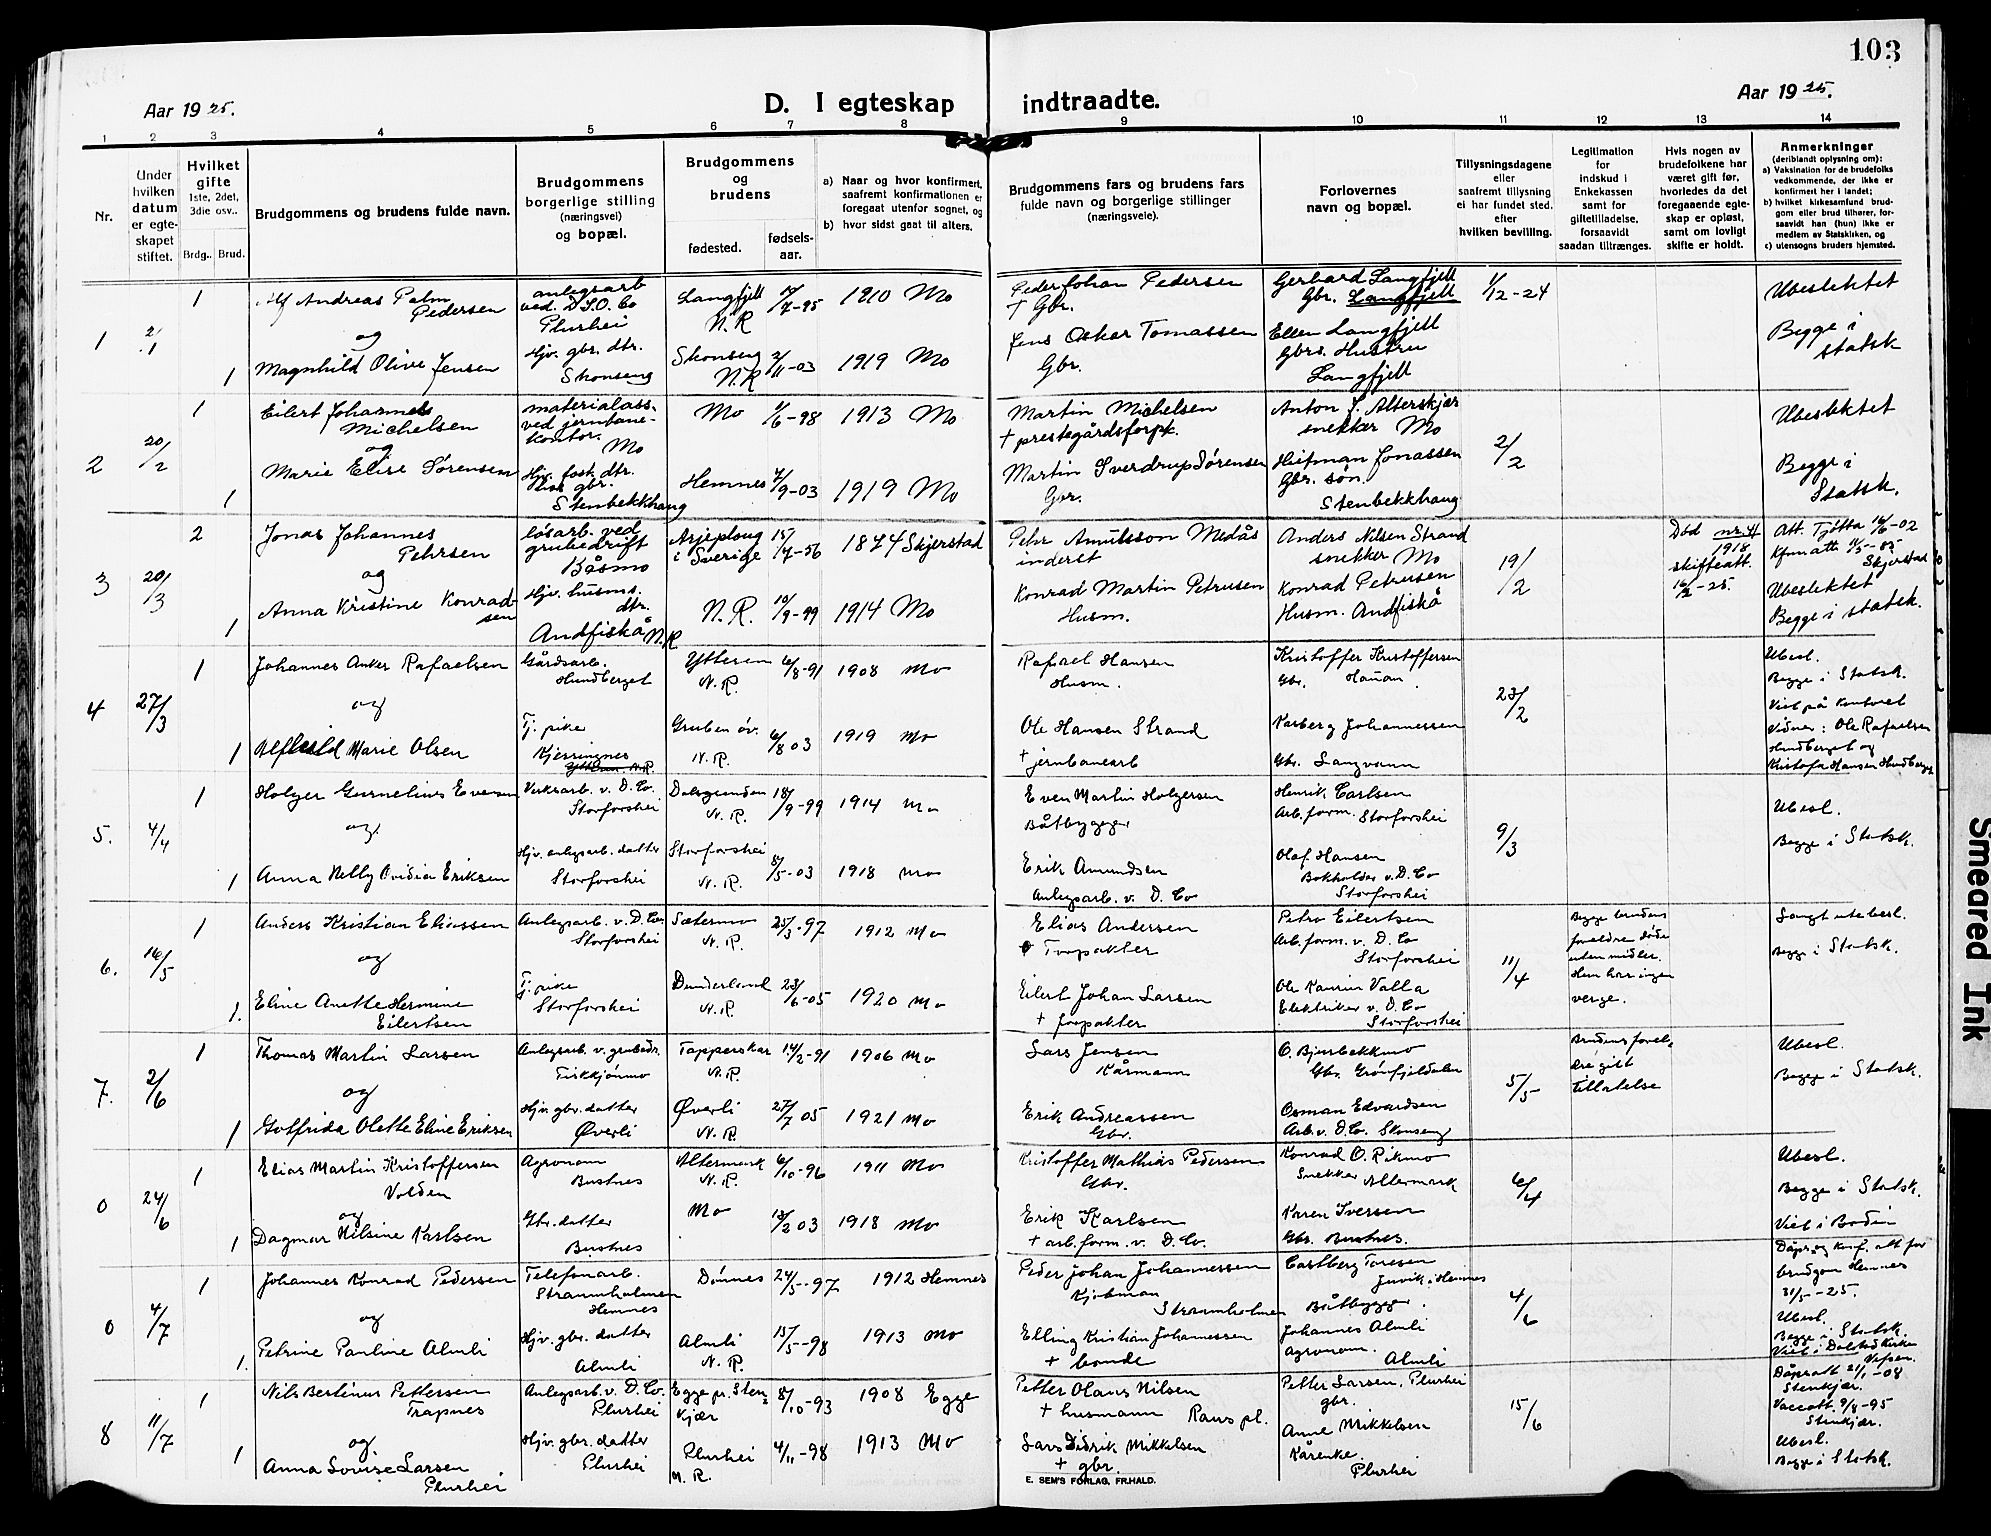 103
Aar 1925.
D. I egteskap indtraadte.
Aar 1925.
1 2 3 4 5 6 7 8 9 10 11 12 13 14
Nr.
Under hvilken datum er egte- skapet stiftet.
Hvilket gifte 1ste, 2det, 3die osv..
Brdg.. Brud.
Brudgommens og brudens fulde navn.
Brudgommens borgerlige stilling (næringsvei) og bopæl.
Brudgommens og brudens
fødested.
fødsels- aar.
a) Naar og hvor konfirmert, saafremt konfirmationen er foregaat utenfor sognet, og
b) hvor sidst gaat til alters.
Brudgommens fars og brudens fars fulde navn og borgerlige stillinger (næringsveie).
Forlovernes navn og bopæl.
Tillysningsdagene eller saafremt tillysning ei har fundet sted. efter hvilken bevilling.
Legitimation for indskud i Enkekassen samt for giftetilladelse, forsaavidt saadan tiltrænges.
Hvis nogen av brudefolkene har været gift før, hvorledes da det foregaaende egte- skap er opløst, samt om lovligt skifte er holdt.
Anmerkninger (deriblandt oplysning om):
a) Vaksination for de brudefolks vedkommende, der ikke er konfirmert her i landet;
b) hvilket kirkesamfund brud- gom eller brud tilhører, for- saavidt han (hun) ikke er medlem av Statskirken, og
c) utensogns bruders hjemsted.
1 2/1 1 Alf Andreas Palm Pedersen anlegsarb ved. D.I.O. Co Plurhei Langfjell N.R 1910 Mo Peder Johan Pedersen + Gbr. Gerhard Langfjell Gbr. Langfjell 1/12-24 Ubeslektet
og
1 Magnhild Olive Jensen Hjv. gbr. dtr. Skonseng Skonseng N.R 2/11-03 1919 Mo Jens Oskar Tomassen Gbr. Ellen Langfjell Gbrs. Hustru Langfjell Begge i statsk
2 20/2 1 Eilert Johannes Michelsen materialass. ved jernbane- kontor. Mo Mo 1/6-98 1913 Mo Martin Michelsen + prestegårdsforpk. Anton J. Alterskjær snekker Mo 2/2 Ubeslektet
og
1 Marie Elise Sørensen Hjv. fosk. dtr. hos gbr. Stenbekkhaug Hemnes 4/9-03 1919 Mo Martin Sverdrup Sørensen Gbr. Jonassen Gbr. søn Stenbekkhaug Begge i Statsk.
3 20/3 2 Jonas Johannes Pehrsen løsarb. ved grubedrift Båsmo Arjeploug i Sverige 15/7-56 1874 Skjerstad Pehr Amutsson Medås inderst Anders Nilsen Strand snekker Mo 19/2 Død nr. 4 1918 skifteatt. 16/2-25. Att. Tjøtta 16/6-02 Kfm atts 11/5-85 Skjerstad
og
1 Anna Kristine Konrad- sen Hjv. husmd. dtr. Andfiskå N.R N.R. 10/9-99 1914 Mo Konrad Martin Petrusen Husm. Konrad Petrusen Husm. Andfiskå Ubeslektet Begge i statsk.
4 27/3 1 Johannes Anker Rafaelsen Gårdsarb. Hundberget Ytteren N.R. 6/8-91 1908 Mo Rafael Hansen Husm. Kristoffer Kristoffersen Gbr. Hauan 23/2 Ubesl. Begge i Statsk. Viet på Kontoret
og
1 Alfhild Marie Olsen Tj. pike Kjerringnes Ytteren N.R. Gruben øv. N.R. 6/8 03 1919 Mo Ole Hansen Strand + jernbanearb Karberg Johannessen Gbr. Langvann Vidner: Ole Rafaelsen Hundberget og Kristofa Hansen Hundberget
5. 4/4 1 Holger Gurnelius Evensen Verksarb. v. D. Co. Storforshei Dalsgrunden N.R. 18/9-99 1914 Mo Even Martin Holgersen Båtbygger Henrik Carlsen Arb. form. Storforshei 9/3 Ubesl.
og
1 Anna Nelly Ovidia Eriksen Hjv. anlegsarb. datter Storforshei Storforshei N.R. 8/5-03 1918 Mo Erik Amundsen Anlegsarb. v. D. Co Olaf Hansen Bokholder v. D. Co Storforshei Begge i Statsk.
6. 16/5 1 Anders Kristian Eliassen Anlegsarb. v. D. Co. Storforshei Sætermo N.R. 25/3-97 1912 Mo Elias Andersen Forpakter Petro Eilertsen Arb. form. v. D. Co Storforshei 11/4 Begge brudens foreldre døde uten midler. Hun har ingen verge. Langt ute besl. Begge i Statsk.
og
1. Eline Anette Hermine Eilertsen Tj. pike Storforshei Dunderland N.R. 23/6-05 1920 Mo Eilert Johan Larsen + forpakter Ole Kaurin Valla Elektriker v. D. Co Storforshei
7. 2/6 1 Thomas Martin Larsen Anlegsarb. v. grubedr. Fiskkjønmo Tapperskar N.R. 14/2-91 1906 Mo Lars Jensen Kårmann O. Bjurbekkmo Gbr. Grønfjeldalen 5/5 Brudens forel- dre gitt tillatelse Ubesl.
og
1 Gotfrida Olette Eline Eriksen Hjv. gbr. datter Øverli Øverli N.R. 27/7 05 1921 Mo Erik Andreassen Gbr. Osman Edvardsen Arb. v. D. Co. Skonseng Begge i Statsk.
0 24/6 1 Elias Martin Kristoffersen Volden Agronom Bustnes Altermark N.R. 6/10-96 1911 Mo Kristoffer Mathias Pedersen Gbr. Konrad O. Rikmo Snekker Altermark 6/4 Ubesl. Begge i Statsk.
og
1 Dagmar Nilsine Karlsen Gbr. datter Bustnes Mo 13/2 03 1918 Mo Erik Karlsen + arb. form. v. D. Co. Karen Iversen Gbr. Bustnes. Viet i Bodin
0 4/7 1 Johannes Konrad Pedersen Telefonarb. Straumholmen Hemnes Dønnes 24/5-97 1912 Hemnes Peder Johan Johannessen Kjøbman Straumholmen Carlberg Toresen Jurvik i Hemnes Båtbygger. 4/6 Dåps og Konf. att for brudgom Hemnes 31/5-25.
og
1. Petrine Pauline Almli Hjv. gbr. datter Almli Almli N.R. 15/5-98 1913 Mo Elling Kristian Johannessen + bonde Johannes Almli agronom. Almli Ubesl. Begge i Statsk. Viet i Dolstad Kirke Vefsen.
8 11/7 1 Nils Bertinus Pettersen Trapnes Anlegsarb. v. D. Co. Plurhei Egge pr. Sten- kjær 8/10-93 1908 Egge Petter Olaus Nilsen + husmann Raus pl. Petter Larsen, Plurhei gbr. 15/6 Dåpsatt 21/1-08 Stenkjær. Vaccatt. 9/8-95 Stenkjær.
og
1 Anna Lovise Larsen Plurhei Hjv. gbr. datter Plurhei Plurhei N.R. 4/11-98 1913 Mo Lars Didrik Mikkelsen + gbr. Anne Mikkelsen Kårenke. Plurhei Ubesl. Begge i Statsk.
E. SEM'S FORLAG, FR.HALD.
Smeared Ink